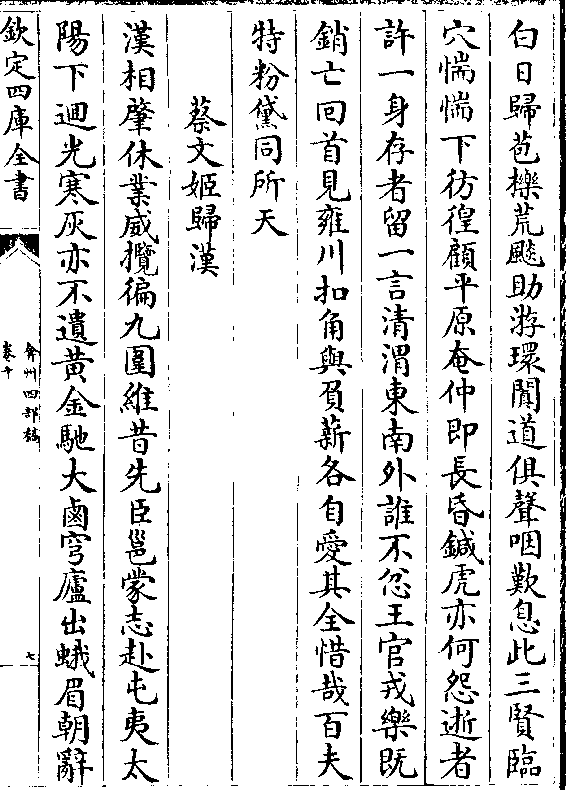 白日歸苞櫟荒颷助游環閒道俱聲咽歎息此三賢臨
穴惴惴下彷徨顧平原奄仲即長昏鍼虎亦何怨逝者
許一身存者留一言清渭東南外誰不忿王官戎樂既
銷亡回首見雍川扣角與負薪各自愛其全惜哉百夫
特粉黛同所天
蔡文姬歸漢
漢相肇休業威攬徧九圍維昔先臣邕蒙志赴屯夷太
陽下迴光寒灰亦不遺黃金馳大鹵穹廬出蛾眉朝辭
欽定四庫全書
弇州四部稿
卷十
七